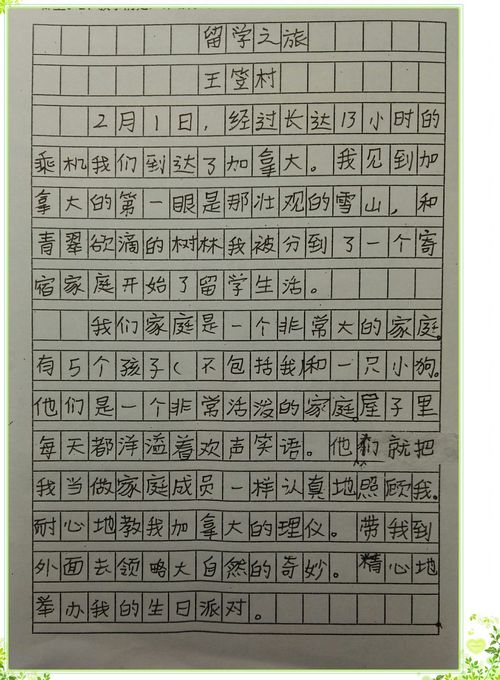 留学之旅
王笠村
2月1日，经过长达13小时的
乘机我们到达了加拿大。我见到加
拿大的第一眼是那壮观的雪山，和
青翠欲滴的树林我被分到了一个寄
宿家庭开始了留学生活。
我们家庭是一个非常大的家庭。
有5个孩子（不包括我）和一只小狗。
他们是一个非常活泼的家庭。屋子里
每天都洋溢着欢声笑语。他们就把
我当做家庭成员一样认真地照顾我。
耐心地教我加拿大的理仪。带我到
外面去领略大自然的奇妙。精心地
举办我的生日派对。